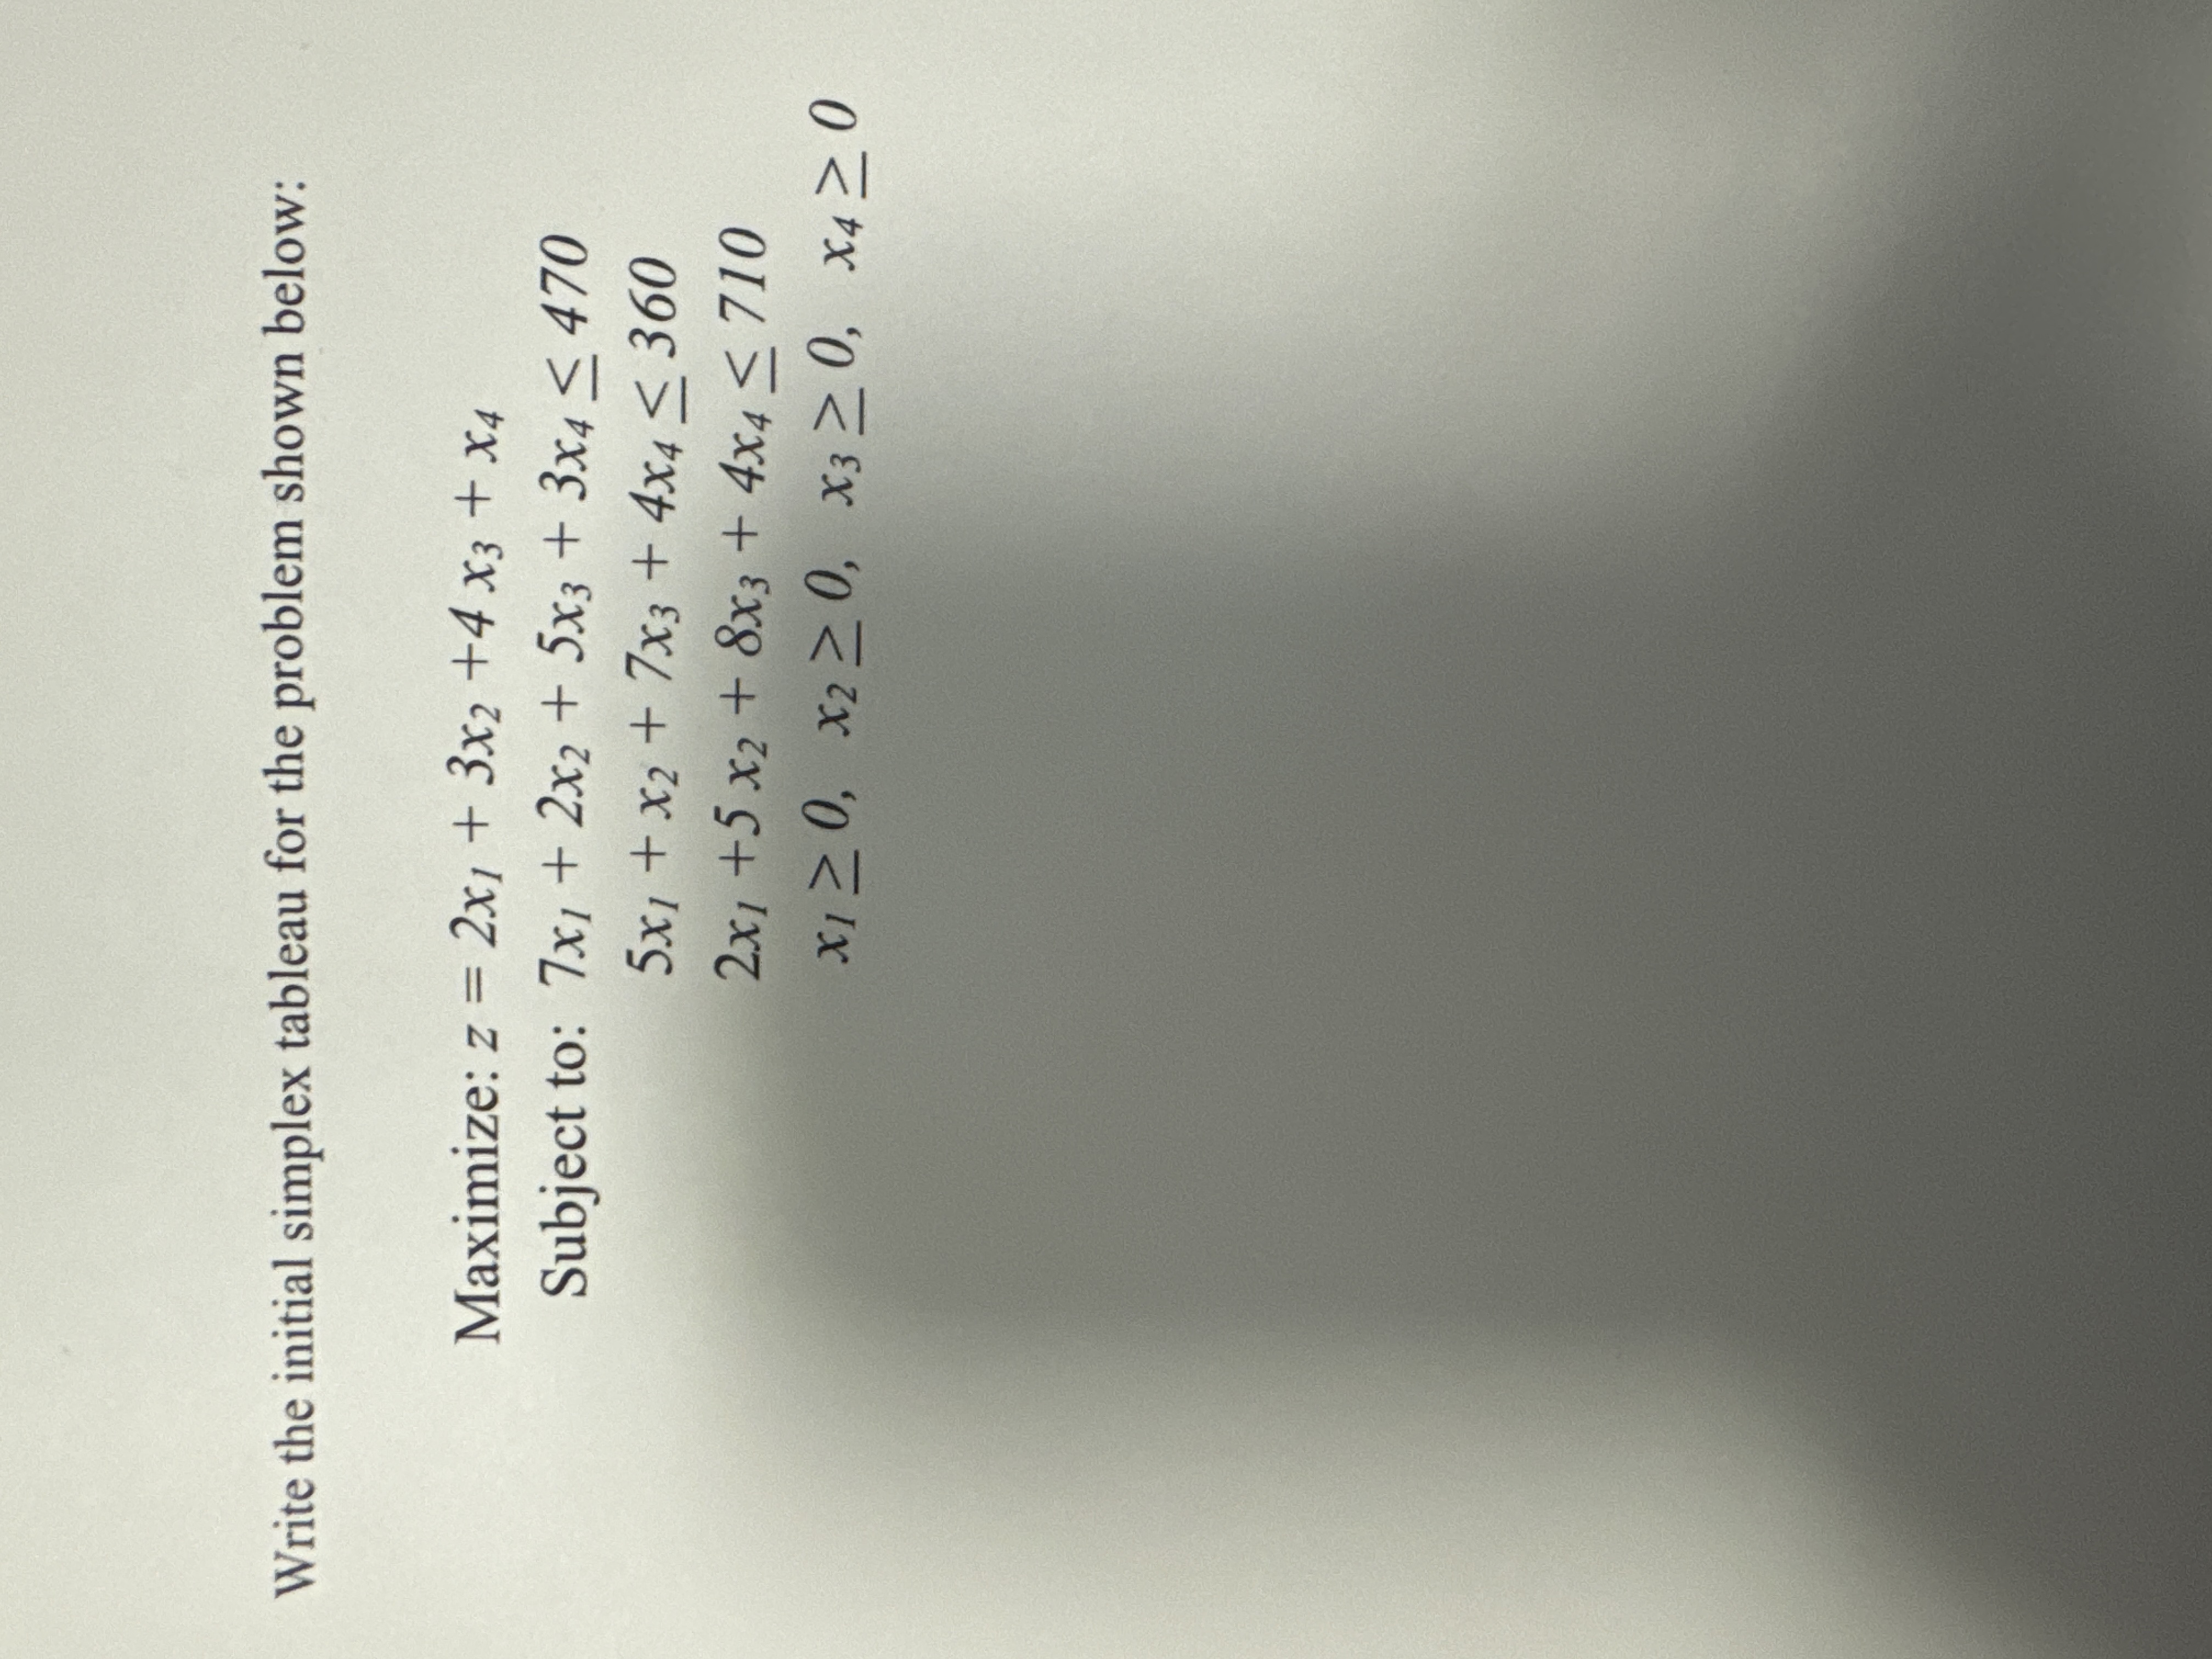 Write the initial simplex tableau for the problem shown below:
Maximize: z = 2x₁ + 3x₂ +4 x₃ + x₄
Subject to: 7x₁ + 2x₂ + 5x₃ + 3x₄ ≤ 470
5x₁ + x₂ + 7x₃ + 4x₄ ≤ 360
2x₁ +5 x₂ + 8x₃ + 4x₄ ≤ 710
x₁ ≥ 0, x₂ ≥ 0, x₃ ≥ 0, x₄ ≥ 0